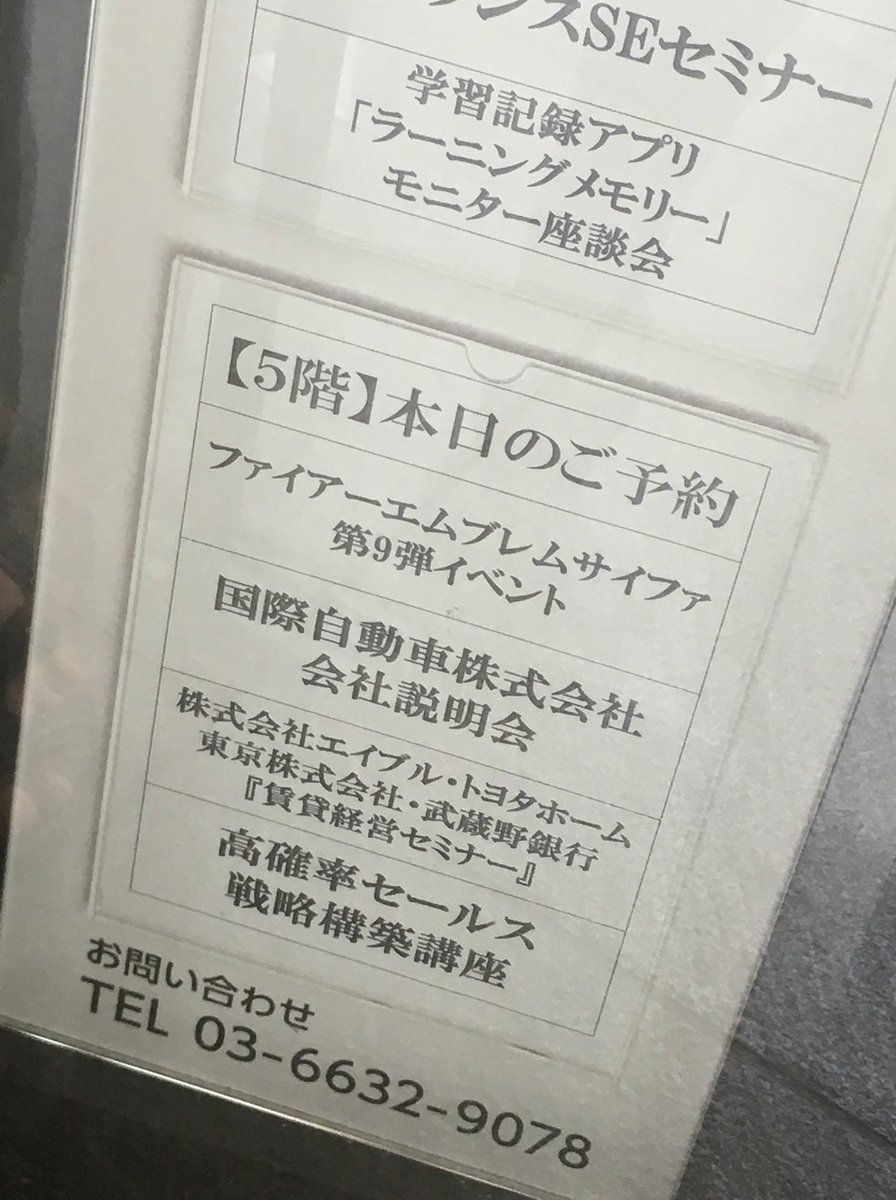 ンスSEセミナー
学習記録アプリ
「ラーニングメモリー」
モニター座談会
【5階】本日のご予約
ファイアーエムブレムサイファ
第9弾イベント
国際自動車株式会社
会社説明会
株式会社エイブル・トヨタホーム
東京株式会社・武蔵野銀行
『賃貸経営セミナー』
高確率セールス
戦略構築講座
お問い合わせ
TEL 03-6632-9078